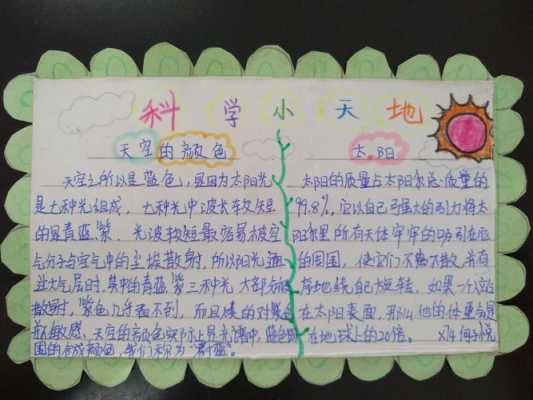 科学小天地
天空的颜色
天空之所以是蓝色,是因为太阳光
是七种光组成,七种光中波长较短
的是青蓝紫,光波较短最容易被空
气分子与空气中的尘埃散射,所以阳光通
过大气层时,其中的青蓝紫三种光大部分被
散射,紫色几乎看不到,而且
敏感,天空的颜色实际上是光谱中蓝色
的合成颜色,我们称为"蔚蓝"。
太阳
太阳的质量占太阳系总质量的
99.8%,它以自己强大的引力将太
阳系里所有天体牢牢的吸引在它
的周围,使它们不离不散,井有
有地绕自己旋转,如果一个人站
在太阳表面,那么他的体重会是
在地球上的20倍。